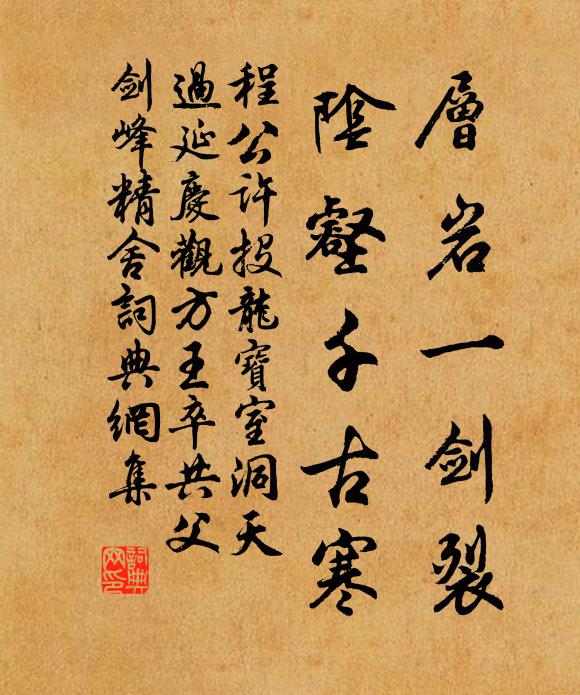 層岩一劍裂
陰壑千古寒
程公許投龍寶室洞天
過延慶觀方王卒共父
劍峰精舍詞典網集
詞典網印